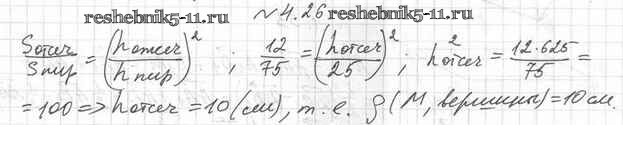 reshebnik5-11.ru №4.26 reshebnik5-11.ru
Sотсеч/Sпир = (hотсеч/hпир)²; 12/75 = (hотсеч/25)²; h²отсеч = 12·625/75 =
= 100 => hотсеч = 10 (см), т.е. ρ(М, вершины) = 10 см.